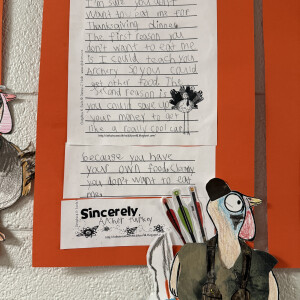 I'm sure you don't
want to eat me for
Thanksgiving dinner.
The first reason you
don't want to eat me
is I could teach you
Archery so you could
get other food. The
second reason is
you could save up
your money to get
like a really cool car
because you have
your own food. Clearly
you don't want to eat
me.
Sincerely,
Archer turkey